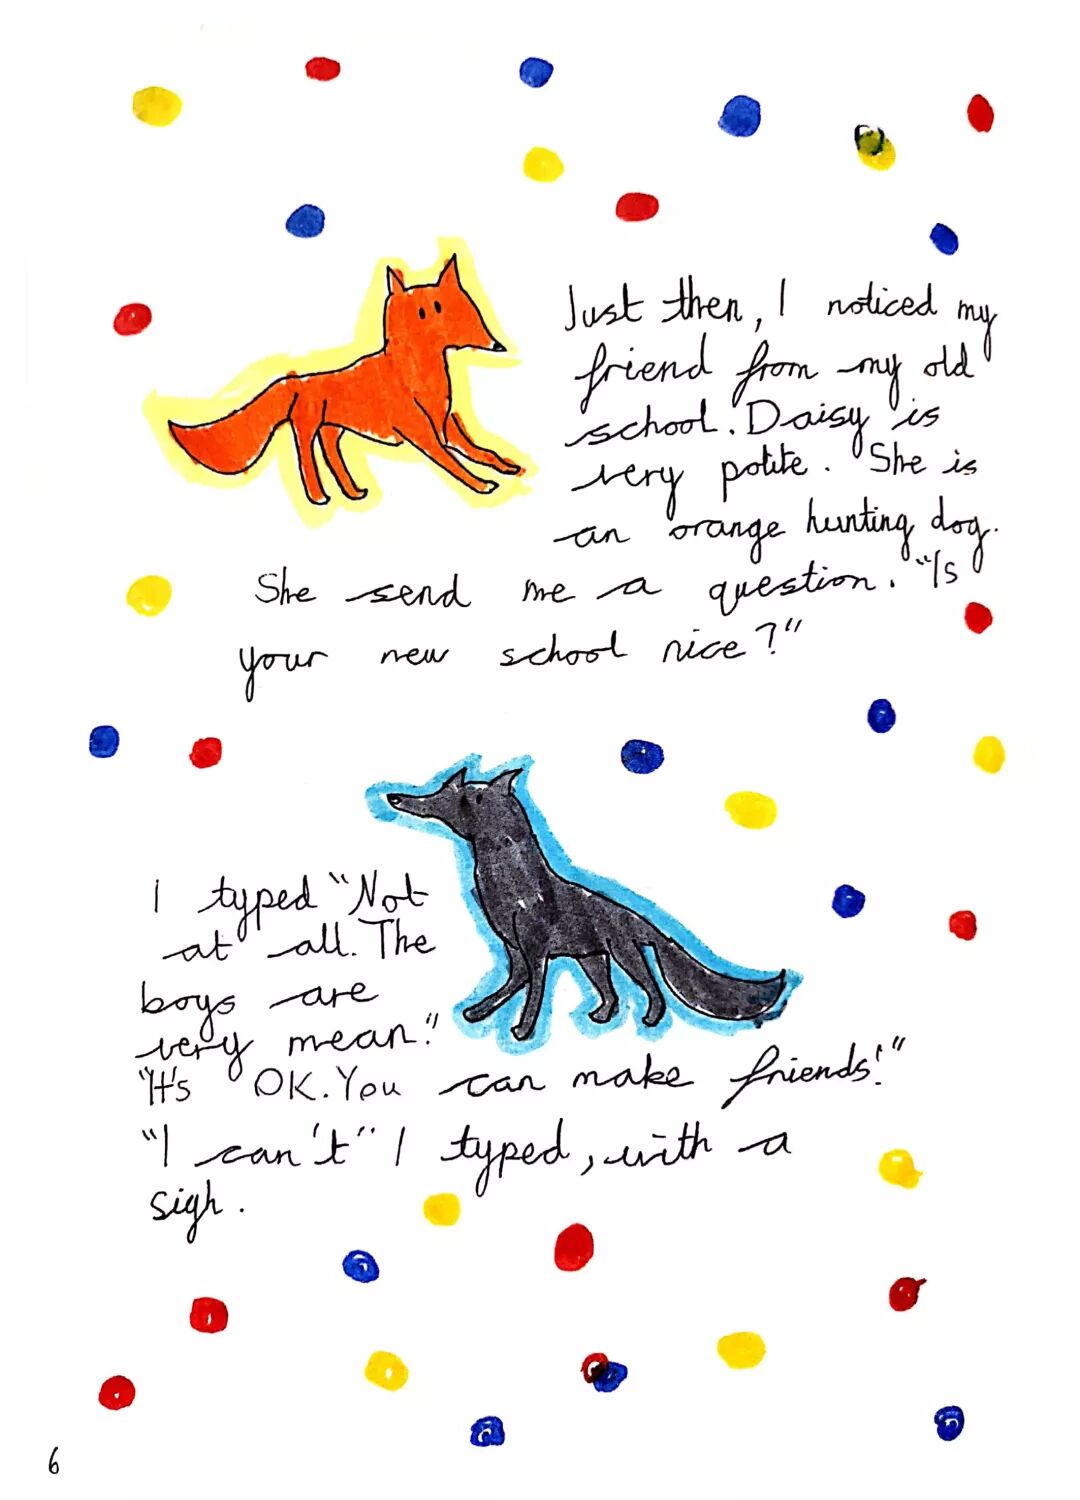 Just then, I noticed my
friend from my old
school. Daisy is
very polite. She is
an orange hunting dog.
She send me a question. "Is
your new school nice?"
I typed "Not
at all. The
boys are
very mean."
"It's OK. You can make friends!"
"I can't" I typed, with a
sigh.
6